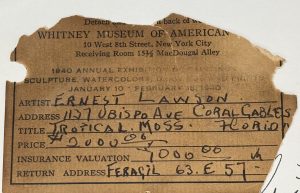 Detach
back of w
WHITNEY MUSEUM OF AMERICAN
10 West 8th Street, New York City
Receiving Room 15½ MacDougal Alley
1940 ANNUAL EXHIBITION
SCULPTURE, WATERCOLORS
JANUARY 10 - FEBRUARY 18, 1940
ARTIST ERNEST LAWSON
ADDRESS 1127 OBISPO AVE CORAL GABLES
TITLE TROPICAL MOSS. FLORIDA
PRICE $2000 00
INSURANCE VALUATION 1000 00
RETURN ADDRESS FERAGIL 63. E 57-